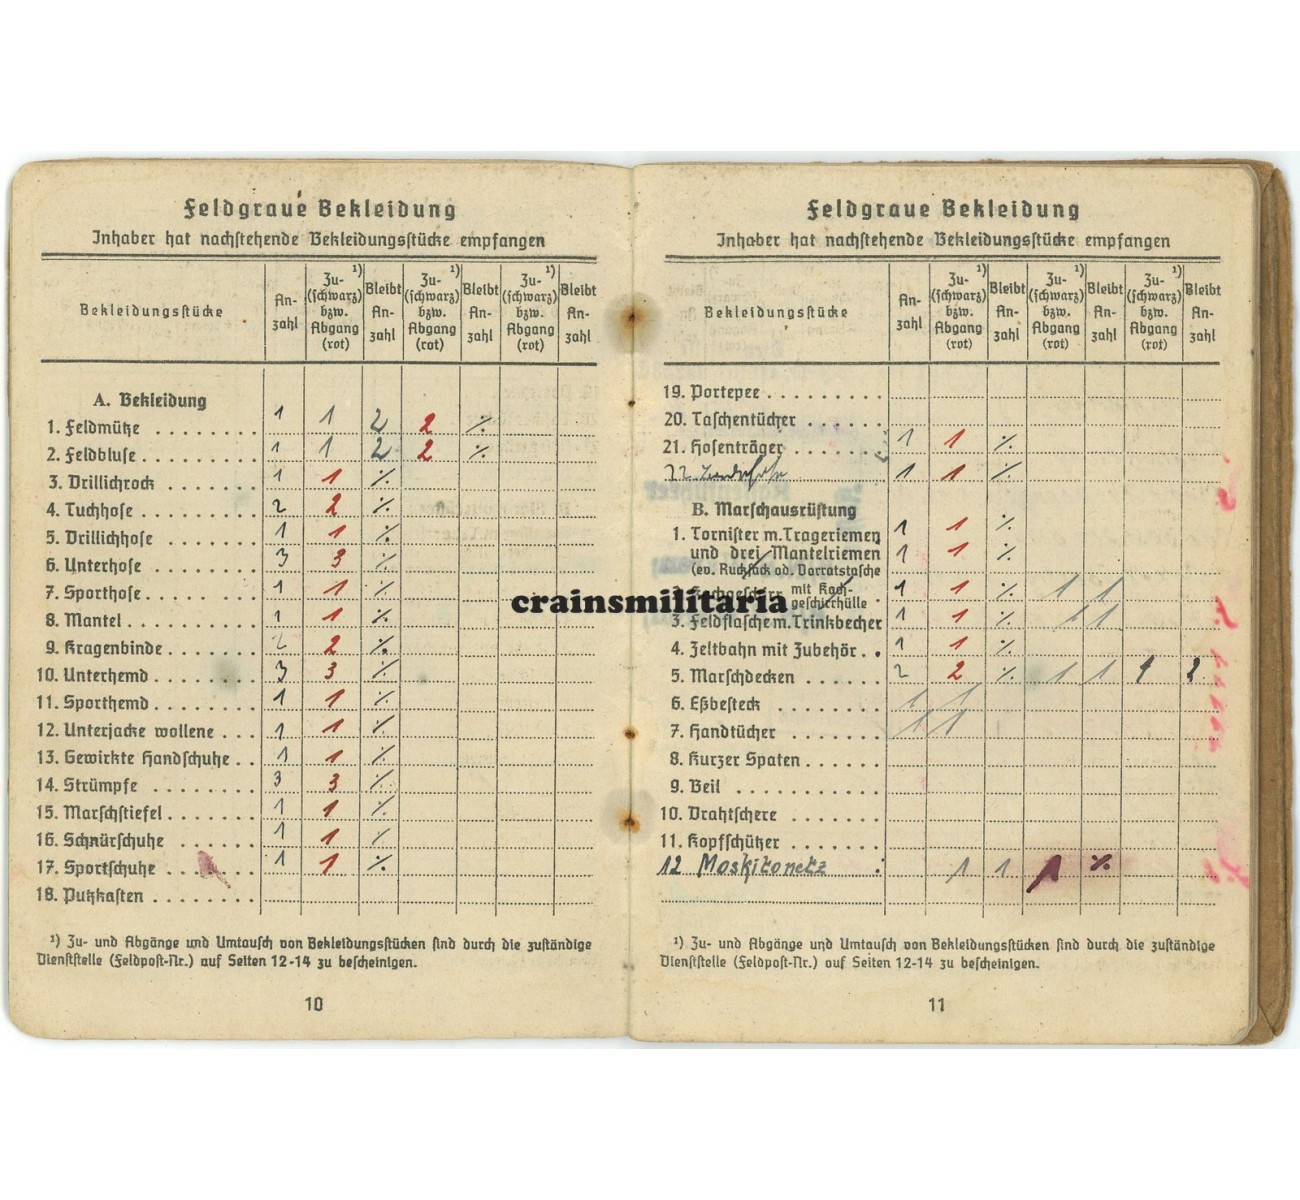 Feldgraue Bekleidung
Inhaber hat nachstehende Bekleidungsstücke empfangen
Bekleidungsstücke | An-zahl | Zu-¹) (schwarz) bzw. Abgang (rot) | Bleibt An-zahl | Zu-¹) (schwarz) bzw. Abgang (rot) | Bleibt An-zahl | Zu-¹) (schwarz) bzw. Abgang (rot) | Bleibt An-zahl
A. Bekleidung
1. Feldmütze . . . . . . . . 1 1 2 2 ⁒
2. Feldbluse . . . . . . . . . 1 1 2 2 ⁒
3. Drillichrock . . . . . . . 1 1 ⁒
4. Tuchhose . . . . . . . . . 2 2 ⁒
5. Drillichhose . . . . . . . 1 1 ⁒
6. Unterhose . . . . . . . . 3 3 ⁒
7. Sporthose . . . . . . . . . 1 1 ⁒
8. Mantel . . . . . . . . . . . 1 1 ⁒
9. Kragenbinde . . . . . . . 2 2 ⁒
10. Unterhemd . . . . . . . . 3 3 ⁒
11. Sporthemd . . . . . . . . 1 1 ⁒
12. Unterjacke wollene . . . 1 1 ⁒
13. Gewirkte Handschuhe . . 1 1 ⁒
14. Strümpfe . . . . . . . . 3 3 ⁒
15. Marschstiefel . . . . . . . 1 1 ⁒
16. Schnürschuhe . . . . . . 1 1 ⁒
17. Sportschuhe . . . . . . . 1 1 ⁒
18. Putzkasten . . . . . . . .
¹) Zu- und Abgänge und Umtausch von Bekleidungsstücken sind durch die zuständige
Dienststelle (Feldpost-Nr.) auf Seiten 12-14 zu bescheinigen.
10
Feldgraue Bekleidung
Inhaber hat nachstehende Bekleidungsstücke empfangen
Bekleidungsstücke | An-zahl | Zu-¹) (schwarz) bzw. Abgang (rot) | Bleibt An-zahl | Zu-¹) (schwarz) bzw. Abgang (rot) | Bleibt An-zahl | Zu-¹) (schwarz) bzw. Abgang (rot) | Bleibt An-zahl
19. Portepee . . . . . . . . .
20. Taschentücher . . . . . .
21. Hosenträger . . . . . . . 1 1 ⁒
22. 1 1 ⁒
B. Marschausrüstung
1. Tornister m. Trageriemen 1 1 ⁒
und drei Mantelriemen 1 1 ⁒
(ev. Rucksack od. Vorratstasche
2. Kochgeschirr mit Koch-geschirrhülle 1 1 ⁒ 1 1
3. Feldflasche m. Trinkbecher 1 1 ⁒ 1 1
4. Zeltbahn mit Zubehör . . 1 1 ⁒
5. Marschdecken . . . . . . 2 2 ⁒ 1 1 1 2
6. Eßbesteck . . . . . . . . 1 1
7. Handtücher . . . . . . . 1 1
8. Kurzer Spaten . . . . . .
9. Beil . . . . . . . . . . .
10. Drahtschere . . . . . . .
11. Kopfschützer . . . . . . .
12 Moskitonetz 1 1 1 ⁒
¹) Zu- und Abgänge und Umtausch von Bekleidungsstücken sind durch die zuständige
Dienststelle (Feldpost-Nr.) auf Seiten 12-14 zu bescheinigen.
11
crainsmilitaria